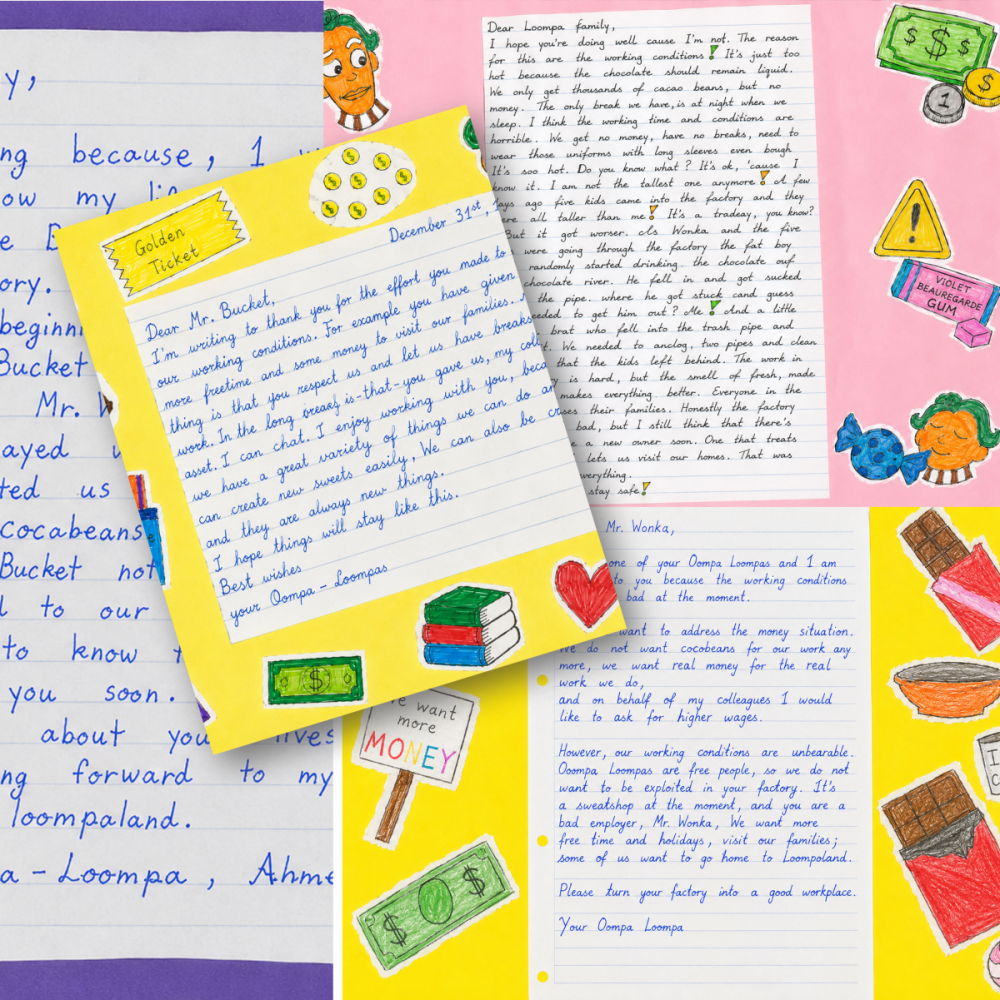 y,
ng because, I
ow my
e
ory.
beginni
Bucket
Mr.
ayed
ted us
cocabeans
Bucket not
l to our
to know
you soon.
about you lives
ng forward to my
loompaland.
a - Loompa, Ahme
Golden
Ticket
December 31st,
Dear Mr. Bucket,
I'm writing to thank you for the effort you made to
our working conditions. For example you have given
more freetime and some money to visit our families.
thing is that you respect us and let us have breaks
work. In the long break is-that-you gave us, my coll
asset. I can chat. I enjoy working with you, beca
we have a great variety of things we can do an
can create new sweets easily, We can also be cr
and they are always new things.
I hope things will stay like this.
Best wishes
your Oompa - Loompas
Dear Loompa family,
I hope you're doing well cause I'm not. The reason
for this are the working conditions! It's just too
hot because the chocolate should remain liquid.
We only get thousands of cacao beans, but no
money. The only break we have, is at night when we
sleep. I think the working time and conditions are
horrible. We get no money, have no breaks, need to
wear those uniforms with long sleeves even bough
It's soo hot. Do you know what? It's ok, 'cause I
know it. I am not the tallest one anymore! A few
days ago five kids came into the factory and they
ere all taller than me! It's a tradeay, you know?
But it got worser. As Wonka and the five
were going through the factory the fat boy
randomly started drinking the chocolate ouf
chocolate river. He fell in and got sucked
the pipe. where he got stuck and guess
eeded to get him out? Me! And a little
brat who fell into the trash pipe and
t. We needed to anclog, two pipes and clean
that the kids left behind. The work in
is hard, but the smell of fresh, made
makes everything better. Everyone in the
ses their families. Honestly the factory
bad, but I still think that there's
e a new owner soon. One that treats
lets us visit our homes. That was
everything.
stay safe!
$ $ $
1
$
VIOLET
BEAUREGARDE
GUM
Mr. Wonka,
one of your Oompa Loompas and I am
to you because the working conditions
bad at the moment.
want to address the money situation.
We do not want cocobeans for our work any
more, we want real money for the real
work we do,
and on behalf of my colleagues I would
like to ask for higher wages.
However, our working conditions are unbearable.
Ooompa Loompas are free people, so we do not
want to be exploited in your factory. It's
a sweatshop at the moment, and you are a
bad employer, Mr. Wonka, We want more
free time and holidays, visit our families;
some of us want to go home to Loompoland.
Please turn your factory into a good workplace.
Your Oompa Loompa
We want
more
MONEY
$ $
$